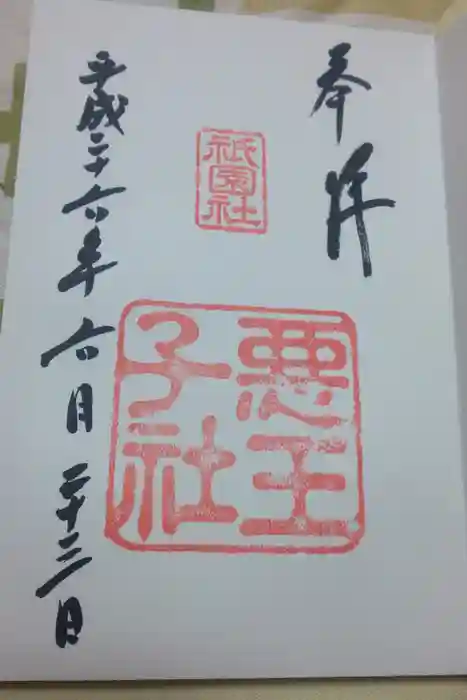 奉拝
祇園社
悪王
子社
平成二十六年六月二十三日